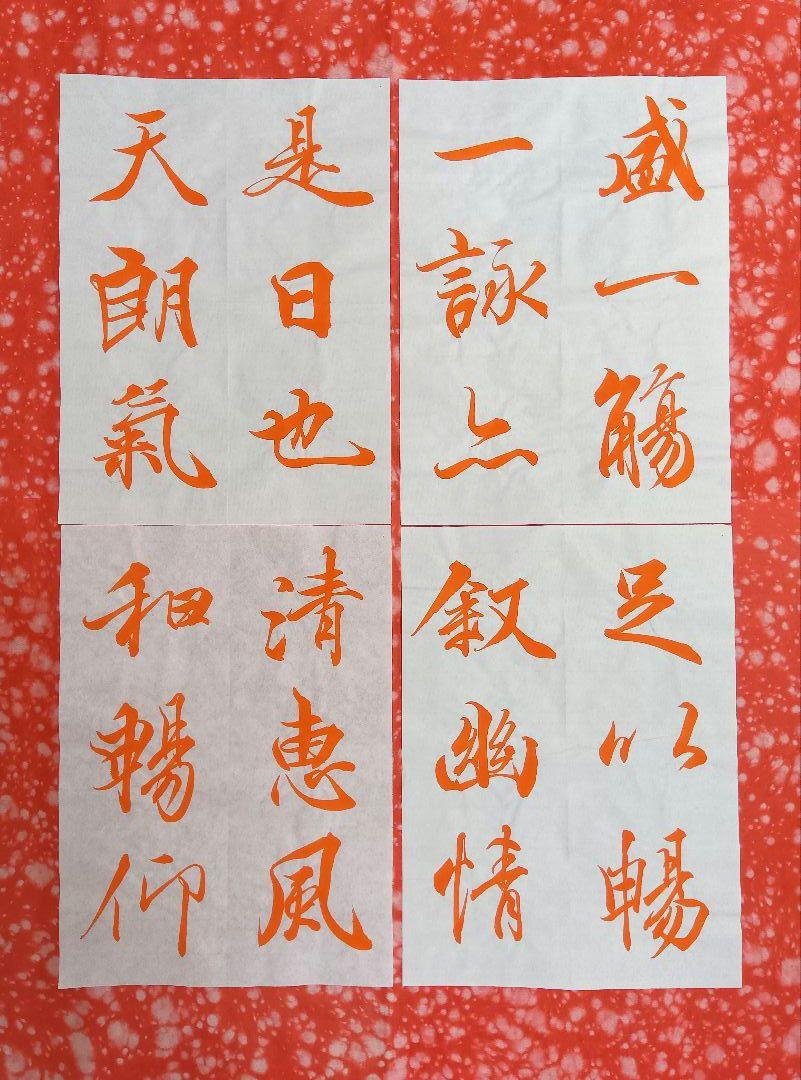 盛一觴
一詠亦
足以暢
叙幽情
是日也
天朗氣
清惠風
和暢仰